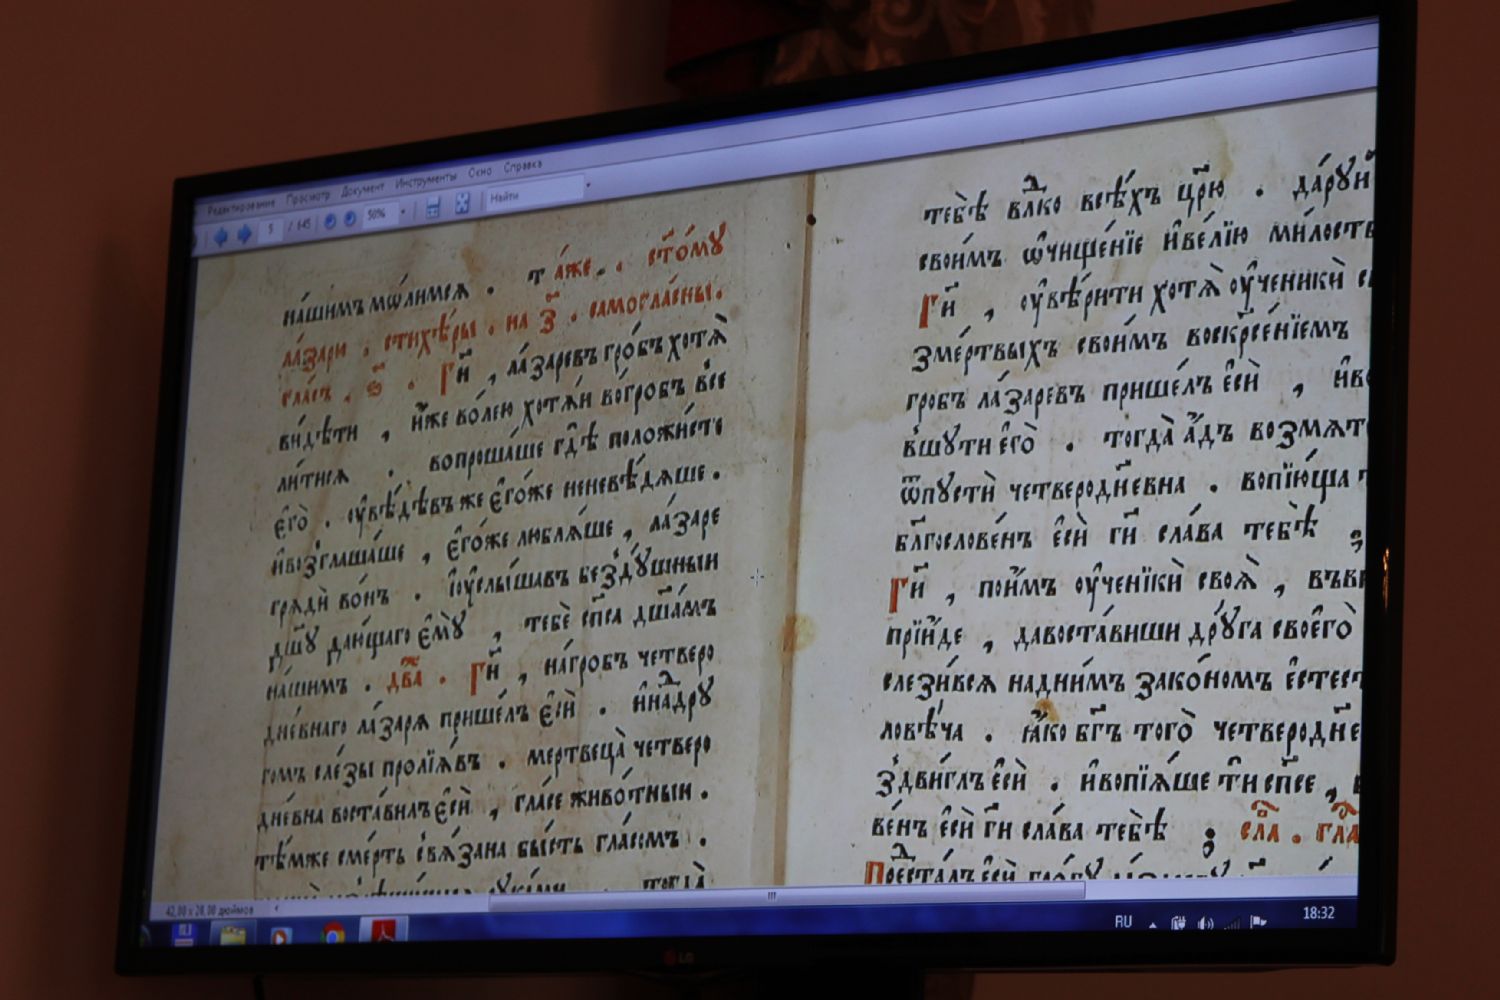 Редактирование Просмотр Документ Инструменты Окно Справка
5 / 645 50% Найти
на́шимъ мѡ́лимсѧ . та́же . ст҃о́мꙋ
ла́зари . стихѣ́ры . на з҃ . самогла́сны .
гла́съ . є҃ . Гⷭ҇и , ла́заревъ гро́бъ хотѧ̀
ви́дѣти , и҆́же во́лею хотѧ́й во́гробъ все
ли́тисѧ . вопроша́ше гдѣ̀ положи́сте
є҆го̀ . оу҆вѣ́дѣвъ же є҆го́же неневѣ́дѧше .
и҆возглаша́ше , є҆го́же люблѧ́ше , ла́заре
грѧдѝ во́нъ . і҆оу҆слы́шавъ безд́ꙋшныи
дш҃ꙋ даю́щаго є҆мꙋ̀ , тебѐ сп҃са дш҃а́мъ
на́шимъ . два̀ . Гⷭ҇и , на́гробъ четверо
дне́внаго ла́зарѧ прише́лъ є҆сѝ . и҆надрꙋ
гомъ сле́зы пролїѧ́въ . мертвеца̀ четверо
дне́вна воста́вилъ є҆сѝ , гла́се живо́тныи .
тѣ́мже сме́рть свѧ́зана бы́сть гла́сомъ .
рꙋка́ми . тогда̀
тебѣ̀ влⷣко всѣ́хъ цр҃ю . да́рꙋй
свои́мъ ѡ҆чище́нїе и҆ве́лїю ми́лость
Гⷭ҇и , оу҆вѣ́рити хотѧ̀ оу҆ченикѝ
зме́ртвыхъ свои́мъ воскрⷭ҇е́нїемъ
гробъ ла́заревъ прише́лъ є҆сѝ ,
вшꙋти є҆го̀ . тогда̀ а҆́дъ возмѧт
ѿпꙋстѝ четверодне́вна . вопїю́ща
блгⷭ҇ослове́нъ є҆сѝ гⷭ҇и сла́ва тебѣ̀ ;
Гⷭ҇и , пои́мъ оу҆ченикѝ своѧ̀ ,
прїи́де , давоста́виши дрꙋ́га своєго̀
слези́всѧ надни́мъ зако́номъ є҆стест
ловѣ́ча . ꙗ҆́ко бг҃ъ того̀ четверодне
здви́глъ є҆сѝ . и҆вопїѧ́ше тѝ сп҃се ,
ве́нъ є҆сѝ гⷭ҇и сла́ва тебѣ̀ ; сла̀ . гла
Предста́лъ є҆сѝ гро́бꙋ
42,00 x 28,00 дюймов
RU 18:32
LG